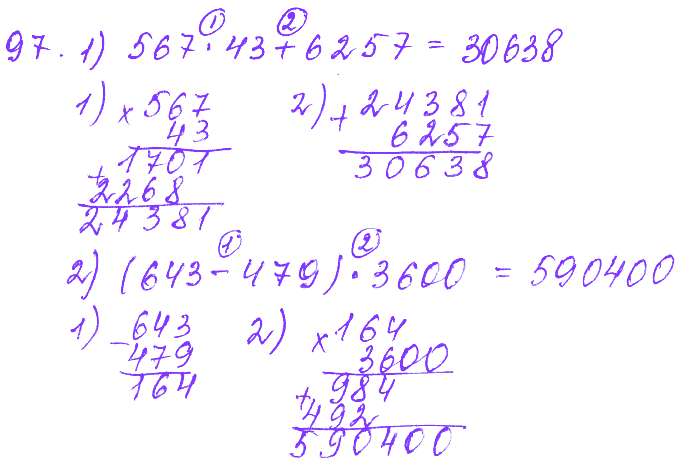 97. 1) 567 · 43 + 6257 = 30638
① ②
1) × 567
43
+ 1701
2268
24381
2) + 24381
6257
30638
2) (643 - 479) · 3600 = 590400
① ②
1) - 643
479
164
2) × 164
3600
+ 984
492
590400